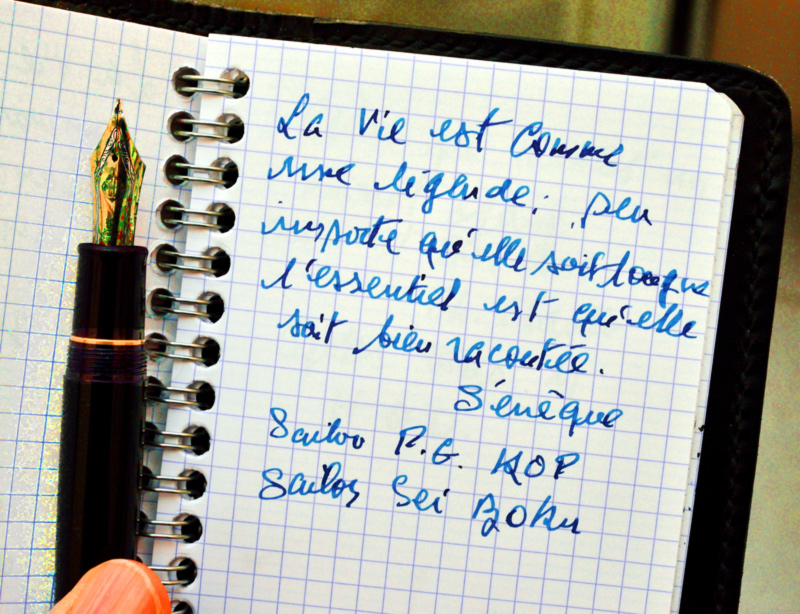 La Vie est Comme
une légende, peu
importe qu'elle soit longue
l'essentiel est qu'elle
soit bien racontée.
Sénèque
Sailor P.G. KOP
Sailor Sei Boku